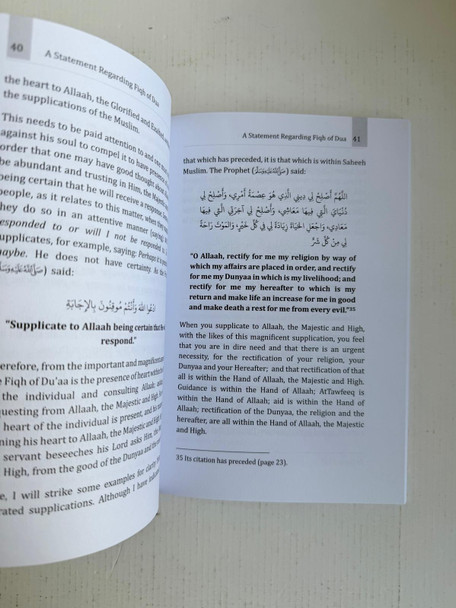 40
A Statement Regarding Fiqh of Dua
the heart to Allaah, the Glorified and
the supplications of the Muslim.
This needs to be paid attention to and one
against his soul to compel it to have
order that one may have good thought about
be abundant and trusting in Him, the
being certain that he will receive a response,
people, as it relates to this matter, when they
they do so in an attentive manner (saying
esponded to or will I not be respond
upplicates, for example, saying: Perhaps
aybe. He does not have certainty. As the
(ﷺ) said:
ادْعُوا اللَّهَ وَأَنْتُمْ مُوقِنُونَ بِالْإِجَابَةِ
"Supplicate to Allaah being certain that
respond."
erefore, from the important and magnificent
Fiqh of Du'aa is the presence of heart
the individual and consulting Allaah
uesting from Allaah, the Majestic and High
heart of the individual is present, and
ning his heart to Allaah, the Majestic and High
servant beseeches his Lord asks Him
High, from the good of the Dunyaa and
e, I will strike some examples for clarity
rated supplications. Although I have
A Statement Regarding Fiqh of Dua 41
that which has preceded, it is that which is within Saheeh
Muslim. The Prophet (ﷺ) said:
اللَّهُمَّ أَصْلِحْ لِي دِينِي الَّذِي هُوَ عِصْمَةُ أَمْرِي، وَأَصْلِحْ لِي
دُنْيَايَ الَّتِي فِيهَا مَعَاشِي، وَأَصْلِحْ لِي آخِرَتِي الَّتِي فِيهَا
مَعَادِي، وَاجْعَلِ الْحَيَاةَ زِيَادَةً لِي فِي كُلِّ خَيْرٍ، وَالْمَوْتَ رَاحَةً
لِي مِنْ كُلِّ شَرٍّ
"O Allaah, rectify for me my religion by way of
which my affairs are placed in order, and rectify
for me my Dunyaa in which is my livelihood; and
rectify for me my hereafter to which is my
return and make life an increase for me in good
and make death a rest for me from every evil."35
When you supplicate to Allaah, the Majestic and High,
with the likes of this magnificent supplication, you feel
that you are in dire need and that there is an urgent
necessity, for the rectification of your religion, your
Dunyaa and your Hereafter; and that rectification of that
all is within the Hand of Allaah, the Majestic and High.
Guidance is within the Hand of Allaah; AtTawfeeq is
within the Hand of Allaah; aid is within the Hand of
Allaah; rectification of the Dunyaa, the religion and the
hereafter, are all within the Hand of Allaah, the Majestic
and High.
35 Its citation has preceded (page 23).